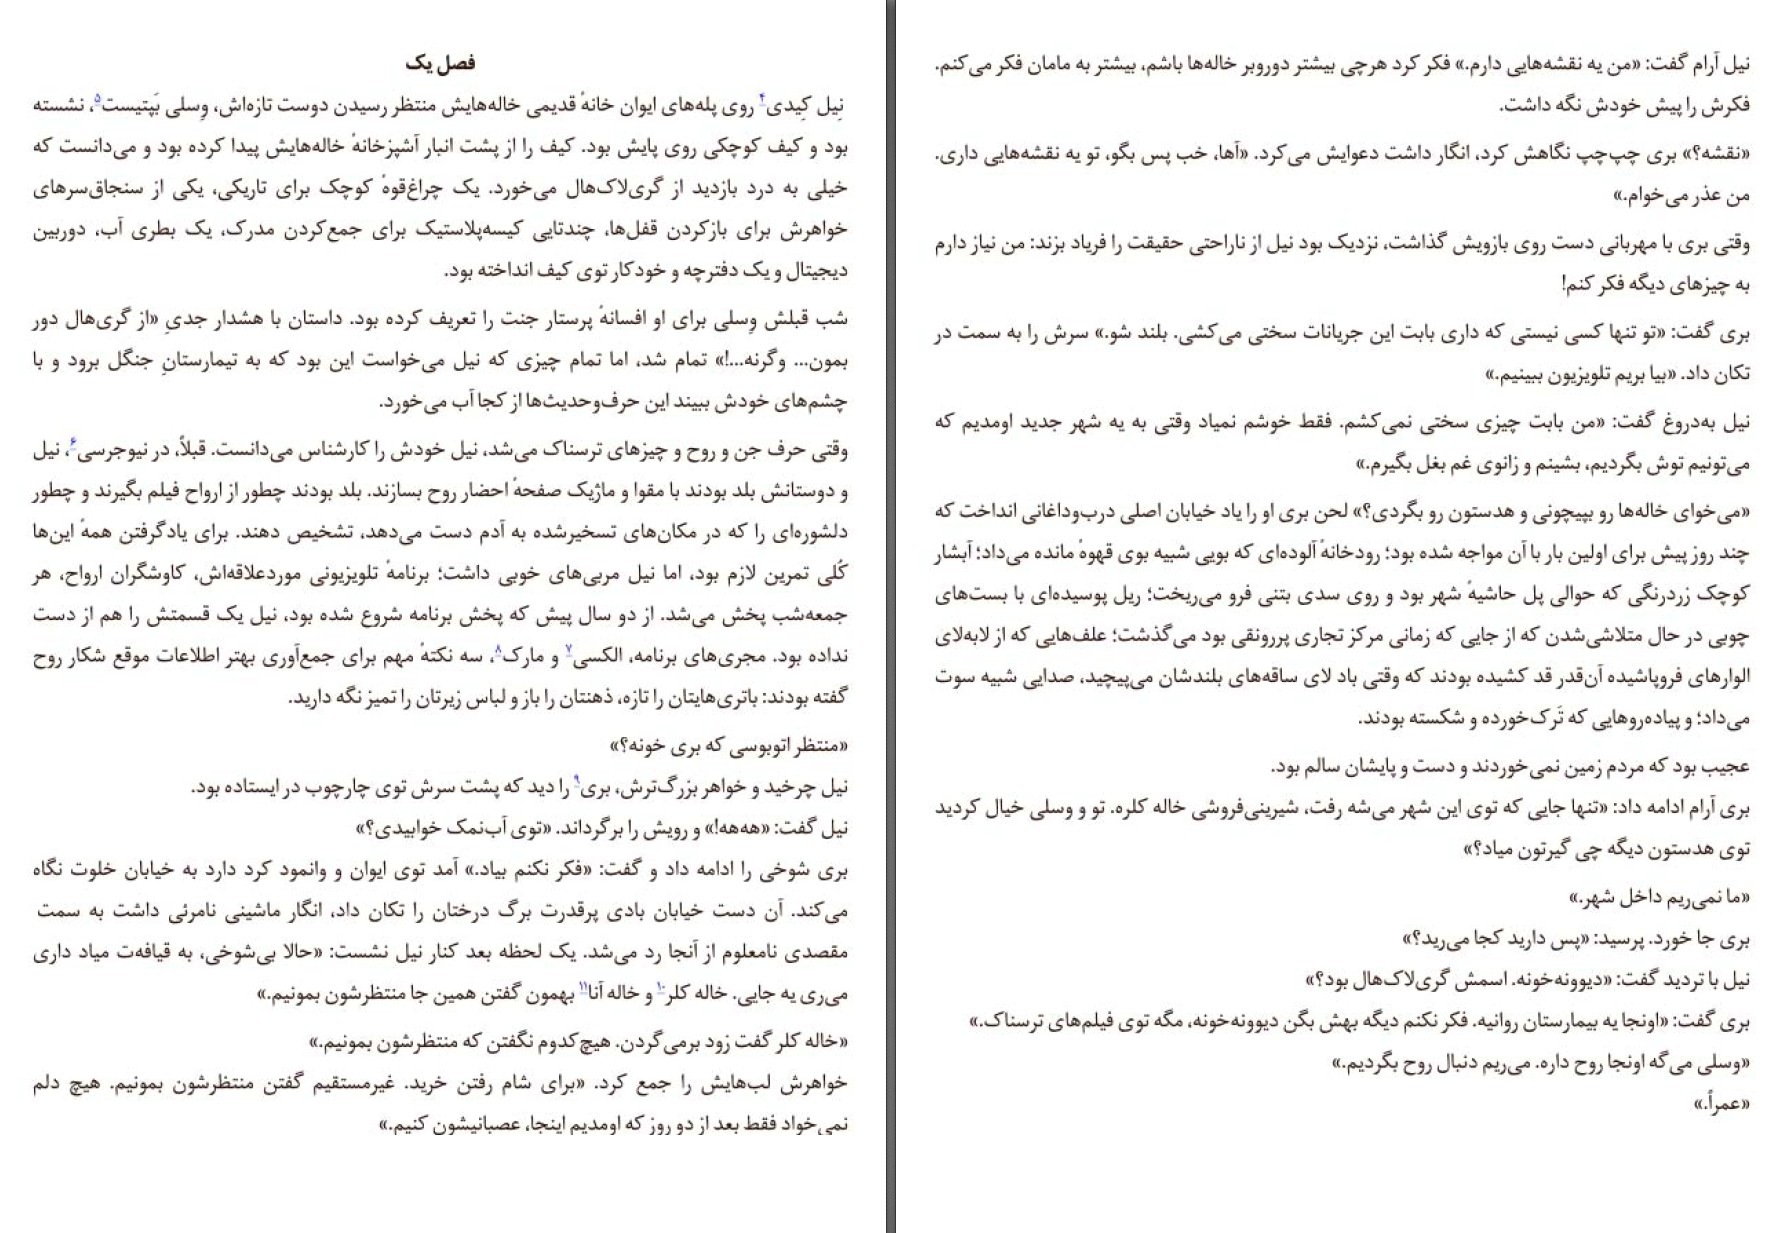 فصل یک
نِیل کِیدی۴ روی پله‌های ایوان خانهٔ قدیمی خاله‌هایش منتظر رسیدن دوست تازه‌اش، وِسلی بَپتیست۵، نشسته
بود و کیف کوچکی روی پایش بود. کیف را از پشت انبار آشپزخانهٔ خاله‌هایش پیدا کرده بود و می‌دانست که
خیلی به درد بازدید از گری‌لاک‌هال می‌خورد. یک چراغ‌قوهٔ کوچک برای تاریکی، یکی از سنجاق‌سرهای
خواهرش برای بازکردن قفل‌ها، چندتایی کیسه‌پلاستیک برای جمع‌کردن مدرک، یک بطری آب، دوربین
دیجیتال و یک دفترچه و خودکار توی کیف انداخته بود.
شب قبلش وِسلی برای او افسانهٔ پرستار جنت را تعریف کرده بود. داستان با هشدار جدیِ «از گری‌هال دور
بمون... وگرنه...!» تمام شد، اما تمام چیزی که نیل می‌خواست این بود که به تیمارستانِ جنگل برود و با
چشم‌های خودش ببیند این حرف‌وحدیث‌ها از کجا آب می‌خورد.
وقتی حرف جن و روح و چیزهای ترسناک می‌شد، نیل خودش را کارشناس می‌دانست. قبلاً، در نیوجرسی۶، نیل
و دوستانش بلد بودند با مقوا و ماژیک صفحهٔ احضار روح بسازند. بلد بودند چطور از ارواح فیلم بگیرند و چطور
دلشوره‌ای را که در مکان‌های تسخیرشده به آدم دست می‌دهد، تشخیص دهند. برای یادگرفتن همهٔ این‌ها
کُلی تمرین لازم بود، اما نیل مربی‌های خوبی داشت؛ برنامهٔ تلویزیونی موردعلاقه‌اش، کاوشگران ارواح، هر
جمعه‌شب پخش می‌شد. از دو سال پیش که پخش برنامه شروع شده بود، نیل یک قسمتش را هم از دست
نداده بود. مجری‌های برنامه، الکسی۷ و مارک۸، سه نکتهٔ مهم برای جمع‌آوری بهتر اطلاعات موقع شکار روح
گفته بودند: باتری‌هایتان را تازه، ذهنتان را باز و لباس زیرتان را تمیز نگه دارید.
«منتظر اتوبوسی که بری خونه؟»
نیل چرخید و خواهر بزرگ‌ترش، بری۹ را دید که پشت سرش توی چارچوب در ایستاده بود.
نیل گفت: «هه‌هه!» و رویش را برگرداند. «توی آب‌نمک خوابیدی؟»
بری شوخی را ادامه داد و گفت: «فکر نکنم بیاد.» آمد توی ایوان و وانمود کرد دارد به خیابان خلوت نگاه
می‌کند. آن دست خیابان بادی پرقدرت برگ درختان را تکان داد، انگار ماشینی نامرئی داشت به سمت
مقصدی نامعلوم از آنجا رد می‌شد. یک لحظه بعد کنار نیل نشست: «حالا بی‌شوخی، به قیافه‌ت میاد داری
می‌ری یه جایی. خاله کلر۱۰ و خاله آنا۱۱ بهمون گفتن همین جا منتظرشون بمونیم.»
«خاله کلر گفت زود برمی‌گردن. هیچ‌کدوم نگفتن که منتظرشون بمونیم.»
خواهرش لب‌هایش را جمع کرد. «برای شام رفتن خرید. غیرمستقیم گفتن منتظرشون بمونیم. هیچ دلم
نمی‌خواد فقط بعد از دو روز که اومدیم اینجا، عصبانیشون کنیم.»
نیل آرام گفت: «من یه نقشه‌هایی دارم.» فکر کرد هرچی بیشتر دوروبر خاله‌ها باشم، بیشتر به مامان فکر می‌کنم.
فکرش را پیش خودش نگه داشت.
«نقشه؟» بری چپ‌چپ نگاهش کرد، انگار داشت دعوایش می‌کرد. «آها، خب پس بگو، تو یه نقشه‌هایی داری.
من عذر می‌خوام.»
وقتی بری با مهربانی دست روی بازویش گذاشت، نزدیک بود نیل از ناراحتی حقیقت را فریاد بزند: من نیاز دارم
به چیزهای دیگه فکر کنم!
بری گفت: «تو تنها کسی نیستی که داری بابت این جریانات سختی می‌کشی. بلند شو.» سرش را به سمت در
تکان داد. «بیا بریم تلویزیون ببینیم.»
نیل به‌دروغ گفت: «من بابت چیزی سختی نمی‌کشم. فقط خوشم نمیاد وقتی به یه شهر جدید اومدیم که
می‌تونیم توش بگردیم، بشینم و زانوی غم بغل بگیرم.»
«می‌خوای خاله‌ها رو بپیچونی و هدستون رو بگردی؟» لحن بری او را یاد خیابان اصلی درب‌وداغانی انداخت که
چند روز پیش برای اولین بار با آن مواجه شده بود؛ رودخانهٔ آلوده‌ای که بویی شبیه بوی قهوهٔ مانده می‌داد؛ آبشار
کوچک زردرنگی که حوالی پل حاشیهٔ شهر بود و روی سدی بتنی فرو می‌ریخت؛ ریل پوسیده‌ای با بست‌های
چوبی در حال متلاشی‌شدن که از جایی که زمانی مرکز تجاری پررونقی بود می‌گذشت؛ علف‌هایی که از لابه‌لای
الوارهای فروپاشیده آن‌قدر قد کشیده بودند که وقتی باد لای ساقه‌های بلندشان می‌پیچید، صدایی شبیه سوت
می‌داد؛ و پیاده‌روهایی که تَرک‌خورده و شکسته بودند.
عجیب بود که مردم زمین نمی‌خوردند و دست و پایشان سالم بود.
بری آرام ادامه داد: «تنها جایی که توی این شهر می‌شه رفت، شیرینی‌فروشی خاله کلره. تو و وسلی خیال کردید
توی هدستون دیگه چی گیرتون میاد؟»
«ما نمی‌ریم داخل شهر.»
بری جا خورد. پرسید: «پس دارید کجا می‌رید؟»
نیل با تردید گفت: «دیوونه‌خونه. اسمش گری‌لاک‌هال بود؟»
بری گفت: «اونجا یه بیمارستان روانیه. فکر نکنم دیگه بهش بگن دیوونه‌خونه، مگه توی فیلم‌های ترسناک.»
«وسلی می‌گه اونجا روح داره. می‌ریم دنبال روح بگردیم.»
«عمراً.»